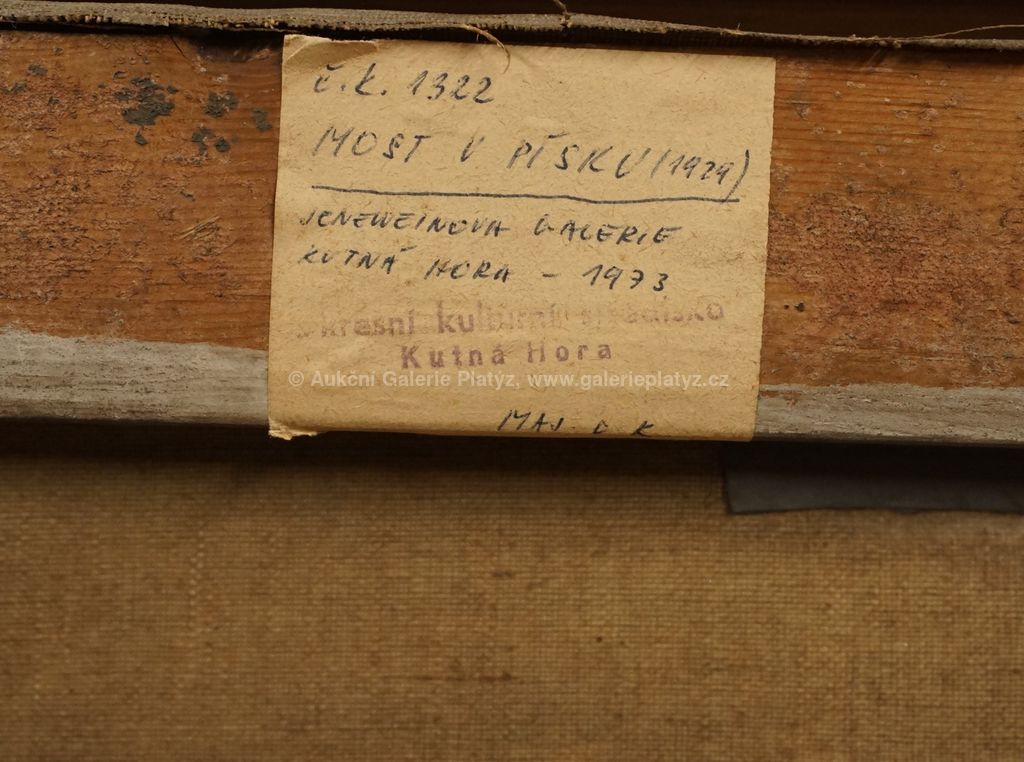 č.k. 1322
MOST V PÍSKU (1929)
JENEWEINOVA GALERIE
KUTNÁ HORA - 1973
kresní kulturní středisko
Kutná Hora
© Aukční Galerie Platýz, www.galerieplatyz.cz
MAJ. K